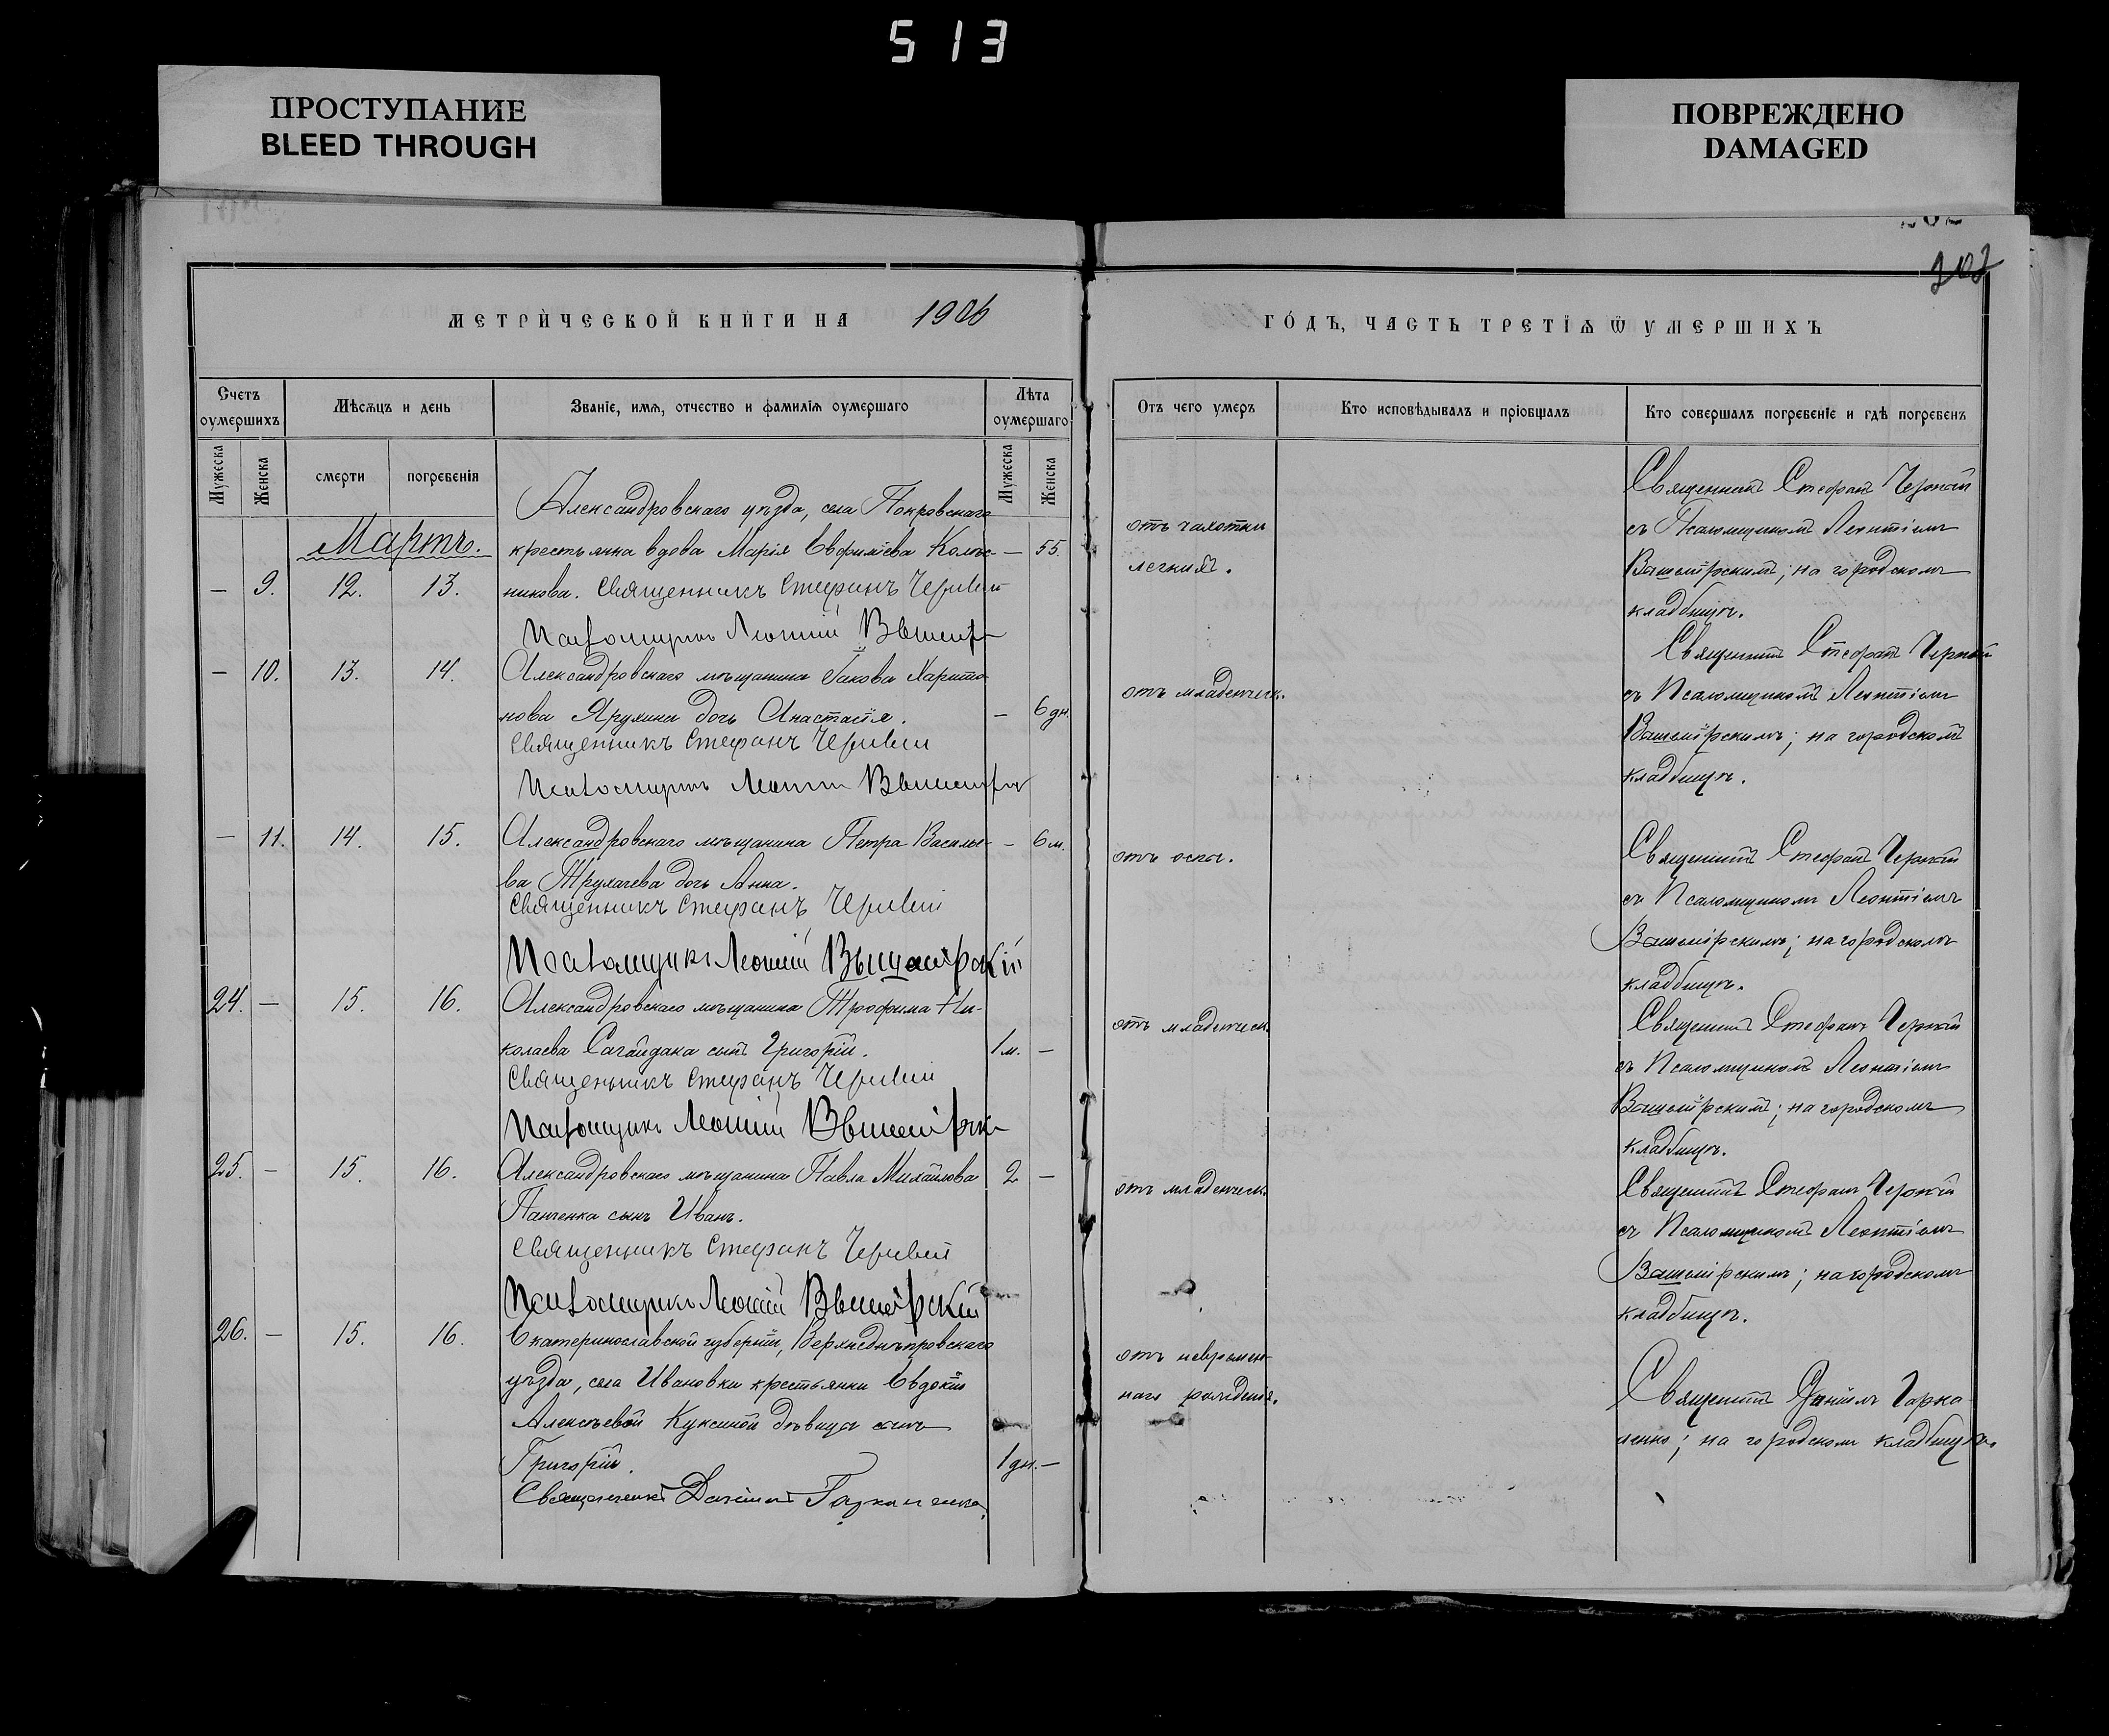 513
ПРОСТУПАНИЕ
BLEED THROUGH
ПОВРЕЖДЕНО
DAMAGED
МЕТРИЧЕСКОЙ КНИГИ НА 1906
ГОДЪ, ЧАСТЬ ТРЕТІѦ Ѿ УМЕРШИХЪ
Счетъ оумершихъ
Мѣсѧцъ и день
Званіе, имѧ, отчество и фамиліѧ оумершаго
Лѣта оумершаго
Отъ чего умеръ
Кто исповѣдывалъ и пріобщалъ
Кто совершалъ погребеніе и гдѣ погребенъ
Мужеска
Женска
смерти
погребенія
Мужеска
Женска
Мартъ.
Александровскаго уѣзда, села Покровскаго
крестьянка вдова Марія Евфиміева Колѣс- — 55
— 9. 12. 13. никова. Священникъ Стефанъ
Псаломщикъ Леонтій
отъ чахотки
легкихъ.
Священникъ Стефанъ
съ Псаломщикомъ Леонтіемъ
; на городскомъ
кладбищѣ.
— 10. 13. 14. Александровскаго мѣщанина Іакова Харито-
нова дочь Анастасія. — 6 дн.
Священникъ Стефанъ
Псаломщикъ Леонтій
отъ младенческ.
Священникъ Стефанъ
съ Псаломщикомъ Леонтіемъ
; на городскомъ
кладбищѣ.
— 11. 14. 15. Александровскаго мѣщанина Петра Василье- — 6 м.
ва Трухачева дочь Анна.
Священникъ Стефанъ
Псаломщикъ Леонтій
отъ оспы.
Священникъ Стефанъ
съ Псаломщикомъ Леонтіемъ
; на городскомъ
кладбищѣ.
24. — 15. 16. Александровскаго мѣщанина Трофима Ни-
колаева Сагайдака сынъ Григорій. 1 м. —
Священникъ Стефанъ
Псаломщикъ Леонтій
отъ младенческ.
Священникъ Стефанъ
съ Псаломщикомъ Леонтіемъ
; на городскомъ
кладбищѣ.
25. — 15. 16. Александровскаго мѣщанина Павла Михайлова 2 —
Панченка сынъ Иванъ.
Священникъ Стефанъ
Псаломщикъ Леонтій
отъ младенческ.
Священникъ Стефанъ
съ Псаломщикомъ Леонтіемъ
; на городскомъ
кладбищѣ.
26. — 15. 16. Екатеринославской губерніи, Верхнеднѣпровскаго
уѣзда, села Ивановки крестьянки Евдокіи
Алексѣевой Куксиной дѣвицы сынъ
Григорій. 1 дн. —
Священникъ Даніилъ
отъ невремен-
наго рожденія.
Священникъ Даніилъ
; на городскомъ кладбищѣ.